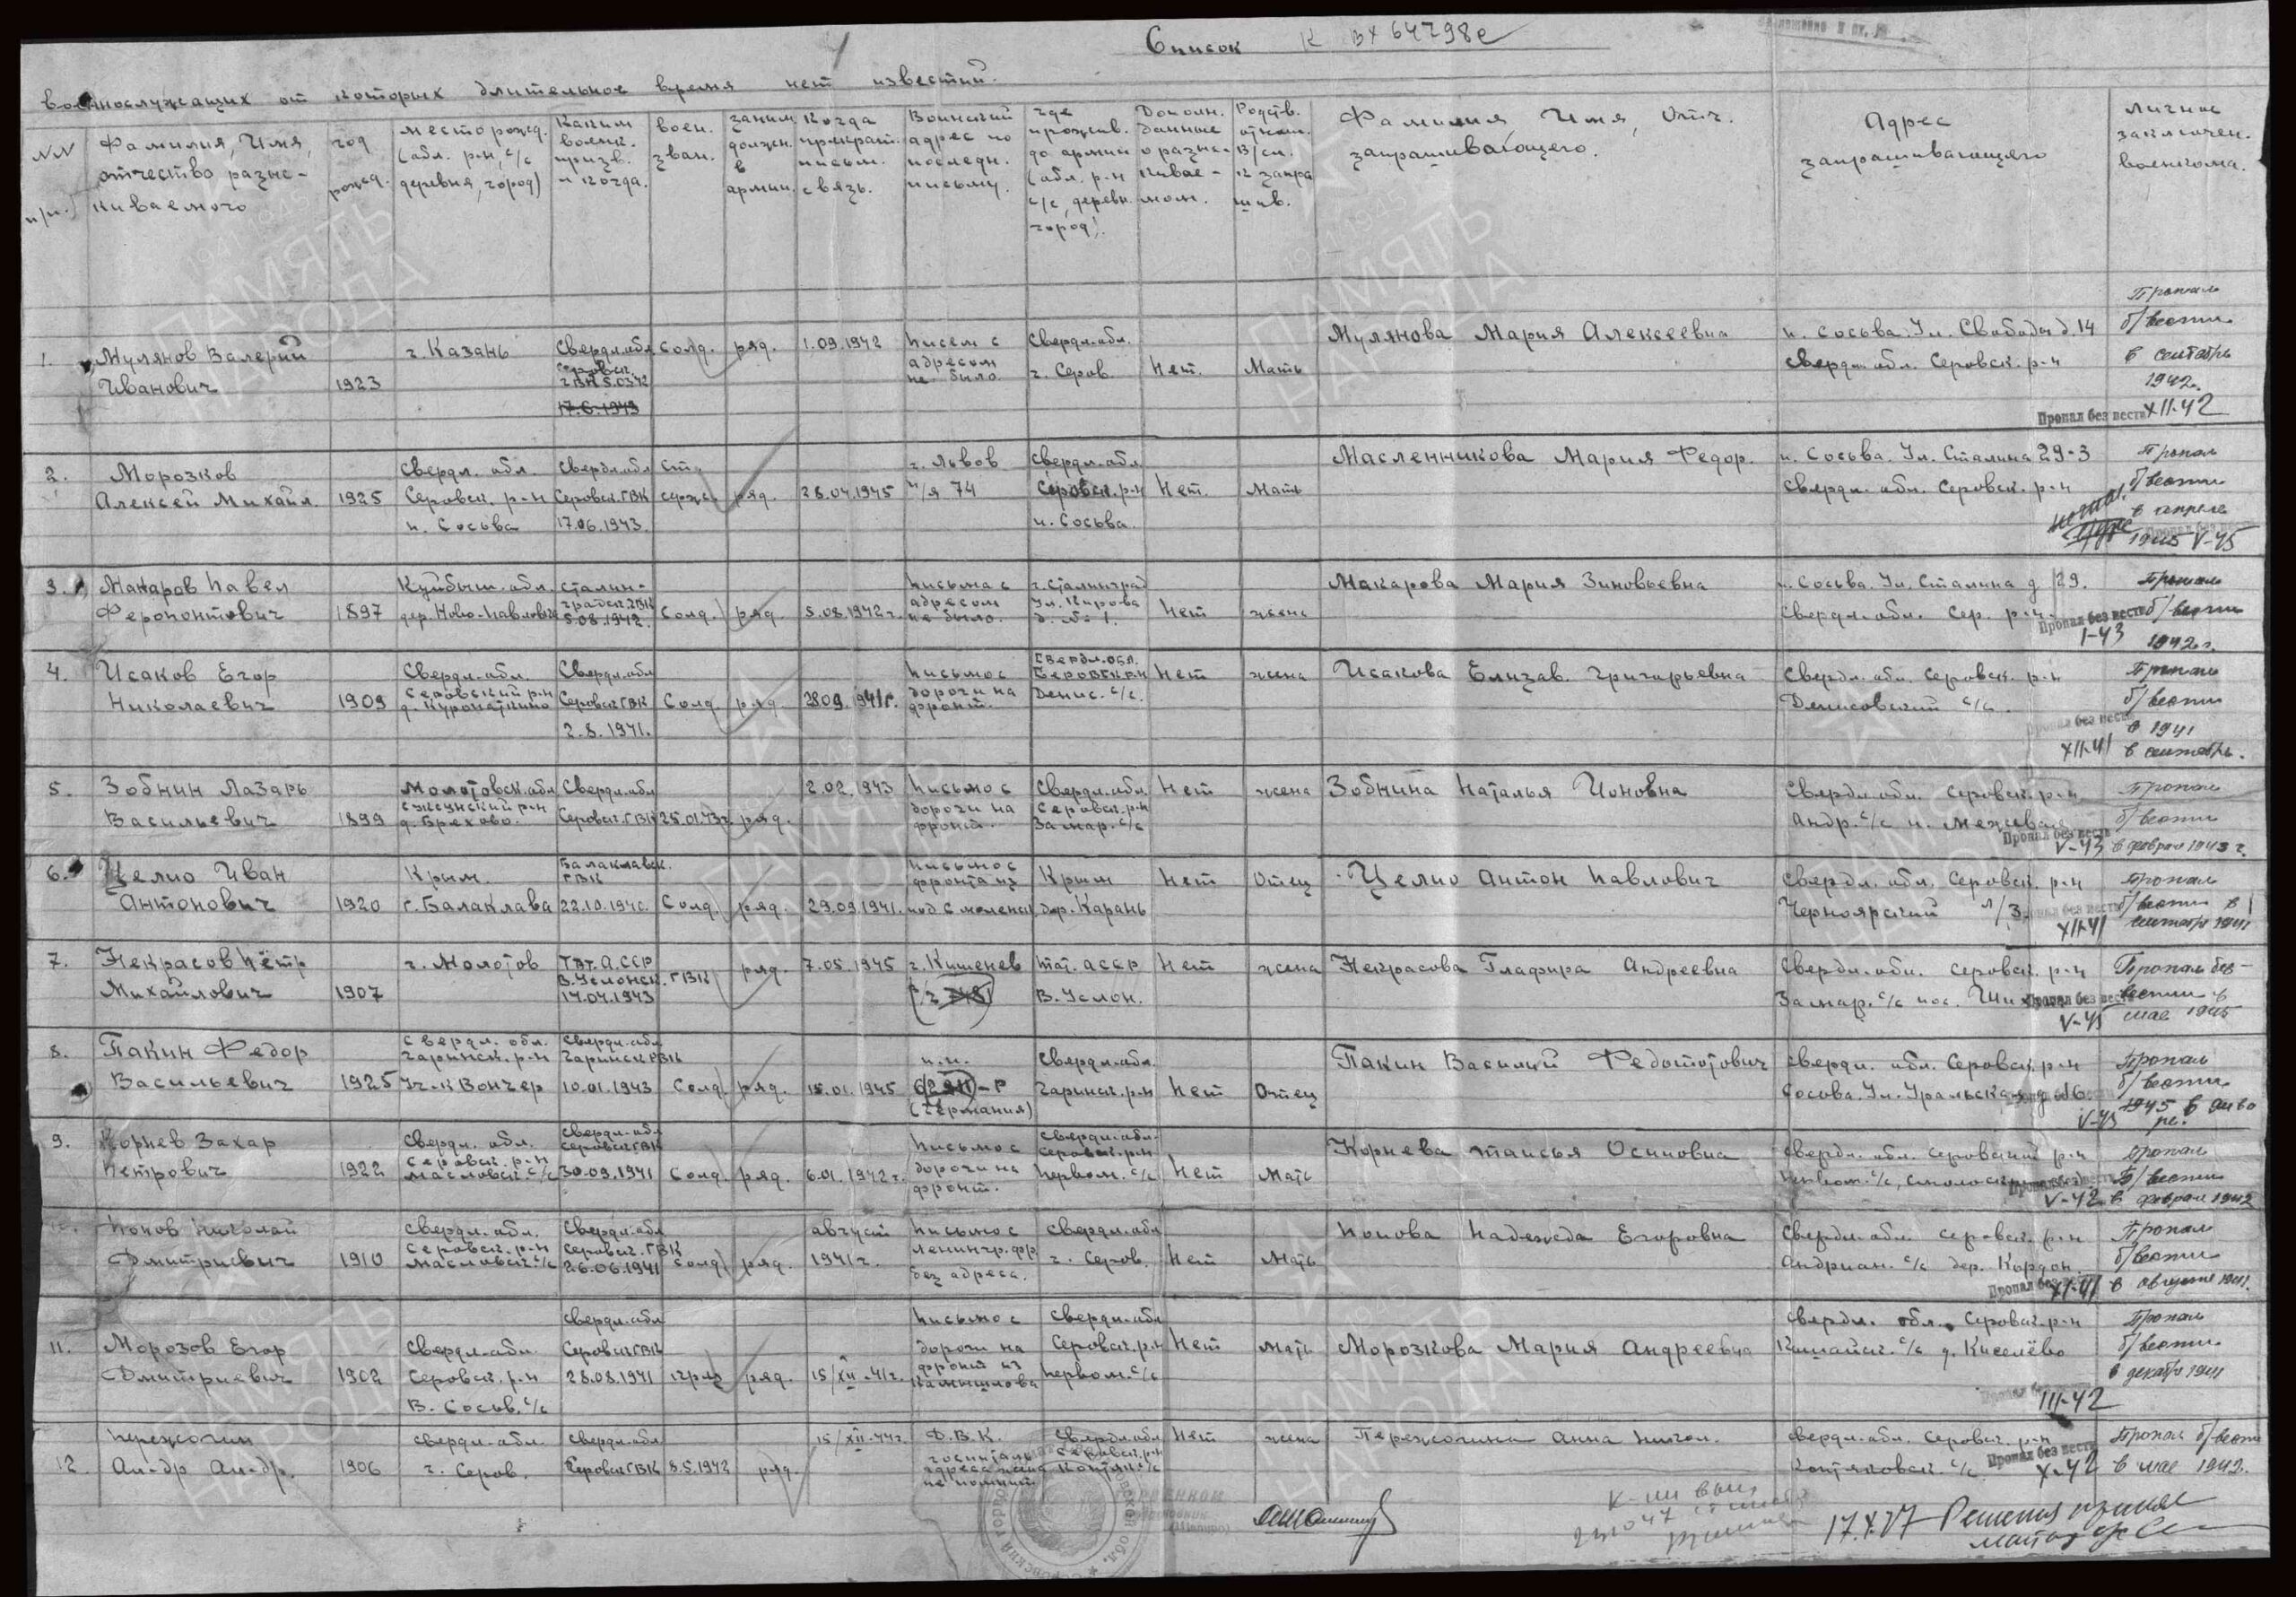 Список К вх 64798с
военнослужащих от которых длительное время нет известий.
NN п/п.
Фамилия, Имя, отчество разыс-киваемого
год рожд.
место рожд. (обл. р-н, с/с деревня, город)
Каким военк. призв. и когда.
Воен. зван.
заним. должн. в армии.
Когда прекрат. письм. связь.
Воинский адрес по последн. письму.
где прожив. до армии (обл. р-н с/с, деревн. город).
Дополн. данные о разыс-кивае-мом.
Родств. отнош. в/сл. к запра шив.
Фамилия, Имя, Отч. запрашивающего.
Адрес запрашивающего
Личное заключен. военкома.
1. Мулянов Валерий Иванович 1923 г. Казань Свердл.обл. Серовск. ГВК 5.03.42 17.6.1943 солд. ряд. 1.09.1942 Писем с адресом не было. Свердл.обл. г. Серов Нет. Мать Мулянова Мария Алексеевна п. Сосьва. Ул. Свободы д. 14 Свердл. обл. Серовск. р-н Пропал б/вести в сентябре 1942г. Пропал без вести XII-42
2. Морозков Алексей Михайл. 1925 Свердл. обл. Серовск. р-н п. Сосьва Свердл.обл Серовск. ГВК 17.06.1943. Ст. сержс. ряд. 28.04.1945 г. Львов п/я 74 Свердл.обл. Серовск. р-н п. Сосьва. Нет. Мать Масленникова Мария Федор. п. Сосьва. Ул. Сталина 29-3 Свердл. обл. Серовск. р-н Пропал б/вести в апреле 1945 V-45
3. Макаров Павел Феропонтович 1897 Куйбыш. обл. дер. Ново-Павловка Сталин-градск. ГВК 5.08.1942. Солд. ряд. 5.08.1942г. Письма с адресом не было. г. Сталинград Ул. Кирова д. № 1. Нет жена Макарова Мария Зиновьевна п. Сосьва. Ул. Сталина д 29. Свердл. обл. Сер. р-н. Пропал без вести I-43 Пропал б/вести 1942г.
4. Исаков Егор Николаевич 1909 Свердл.обл. Серовский р-н д. Куропаткино Свердл.обл Серовск ГВК 2.8.1941. Солд. ряд. 28.09.1941г. Письмо с дороги на фронт. Свердл.обл. Серовск р-н Денис. с/с. Нет жена Исакова Елизав. Григорьевна Свердл. обл. Серовск. р-н Денисовский с/с. Пропал без вести XII-41 Пропал б/вести в 1941 в сентябрь.
5. Зобнин Лазарь Васильевич 1899 Молотовск.обл д. Брехово. Свердл.обл Серовск. ГВК 25.01.43г. ряд. 2.02.1943 Письмо с дороги на фронт. Свердл.обл. Серовск. р-н Замар. с/с Нет жена Зобнина Наталья Ионовна Свердл. обл. Серовск. р-н Андр. с/с п. Межевая Пропал без вести V-43 Пропал б/вести в феврале 1943 г.
6. Целио Иван Антонович 1920 Крым. г. Балаклава Балаклавск. ГВК 22.10.1940. Солд. ряд. 29.09.1941. Письмо с фронта из под Смоленск Крым дер. Карань Нет Отец Целио Антон Павлович Свердл. обл. Серовск. р-н Черноярский л/з. Пропал без вести XII-41 Пропал б/вести в сентябр 1941
7. Некрасов Пётр Михайлович 1907 г. Молотов Тат. АССР В.Услонск. ГВК 14.04.1943 ряд. 7.05.1945 г. Кишенев Тат. АССР В. Услон. Нет жена Некрасова Глафира Андреевна Свердл. обл. Серовск. р-н Замар. с/с пос. Пропал без вести V-45 Пропал без вести в мае 1945
8. Пакин Федор Васильевич 1925 Свердл. обл. Гаринск. р-н Уч-к Вончер Свердл.обл Гаринск РВК 10.01.1943 Солд. ряд. 15.01.1945 п.п. (Германия) Свердл.обл. Гаринск. р-н Нет Отец Пакин Василий Федотович Свердл. обл. Серовск. р-н Сосьва. Ул. Уральская д 16 V-45 Пропал б/вести 1945 в янва ре.
9. Корнев Захар Петрович 1922 Свердл. обл. Серовск. р-н Масловск. с/с Свердл.обл Серовск ГВК 30.09.1941 Солд. ряд. 6.01.1942г. Письмо с дороги на фронт. Свердл.обл. Серовск. р-н Первом. с/с Нет Мать Корнева Таисья Осиповна Свердл. обл. Серовский р-н Первом. с/с, V-42 Пропал б/вести в феврале 1942
10. Попов Николай Дмитриевич 1910 Свердл. обл. Серовск. р-н Масловск с/с Свердл.обл Серовск. ГВК 26.06.1941 Солд. ряд. август 1941г. Письмо с Ленингр. фр. без адреса. Свердл.обл г. Серов. Нет Мать Попова Надежда Егоровна Свердл. обл. Серовск. р-н Андриан. с/с дер. Кордон. Пропал без XI-41 Пропал б/вести в августе 1941.
11. Морозов Егор Дмитриевич 1902 Свердл.обл. Серовск. р-н В. Сосьв. с/с Свердл.обл Серовск ГВК 28.08.1941 кр-ц ряд. 15/XII-41г. Письмо с дороги на фронт из Камышлова Свердл.обл Серовск. р-н Первом. с/с Нет Мать Морозкова Мария Андреевна Свердл. обл. Серовск. р-н Кишайск. с/с д. Киселёво III-42 Пропал б/вести в декабр 1941
12. Пережогин Ал-др Ал-др. 1906 Свердл. обл. г. Серов. Свердл.обл Серовск ГВК 8.5.1942 ряд. 15/XII-44г. Д.В.К. госпиталь адреса жена не помнит Свердл.обл Серовск. р-н Контяк. с/с Нет жена Пережогина Анна Никол. Свердл. обл. Серовск. р-н Контяковск. с/с Пропал без вести X-42 Пропал б/вести в мае 1942.
17.X.47 Решения принял
майор
ПАМЯТЬ НАРОДА
1941-1945